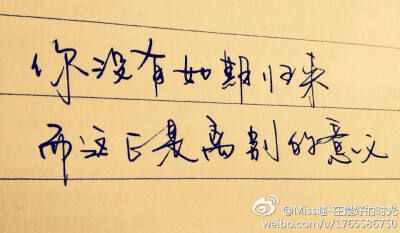 你没有如期归来
而这正是离别的意义
@Miss喵-在最好的时光
weibo.com/u/1765586750